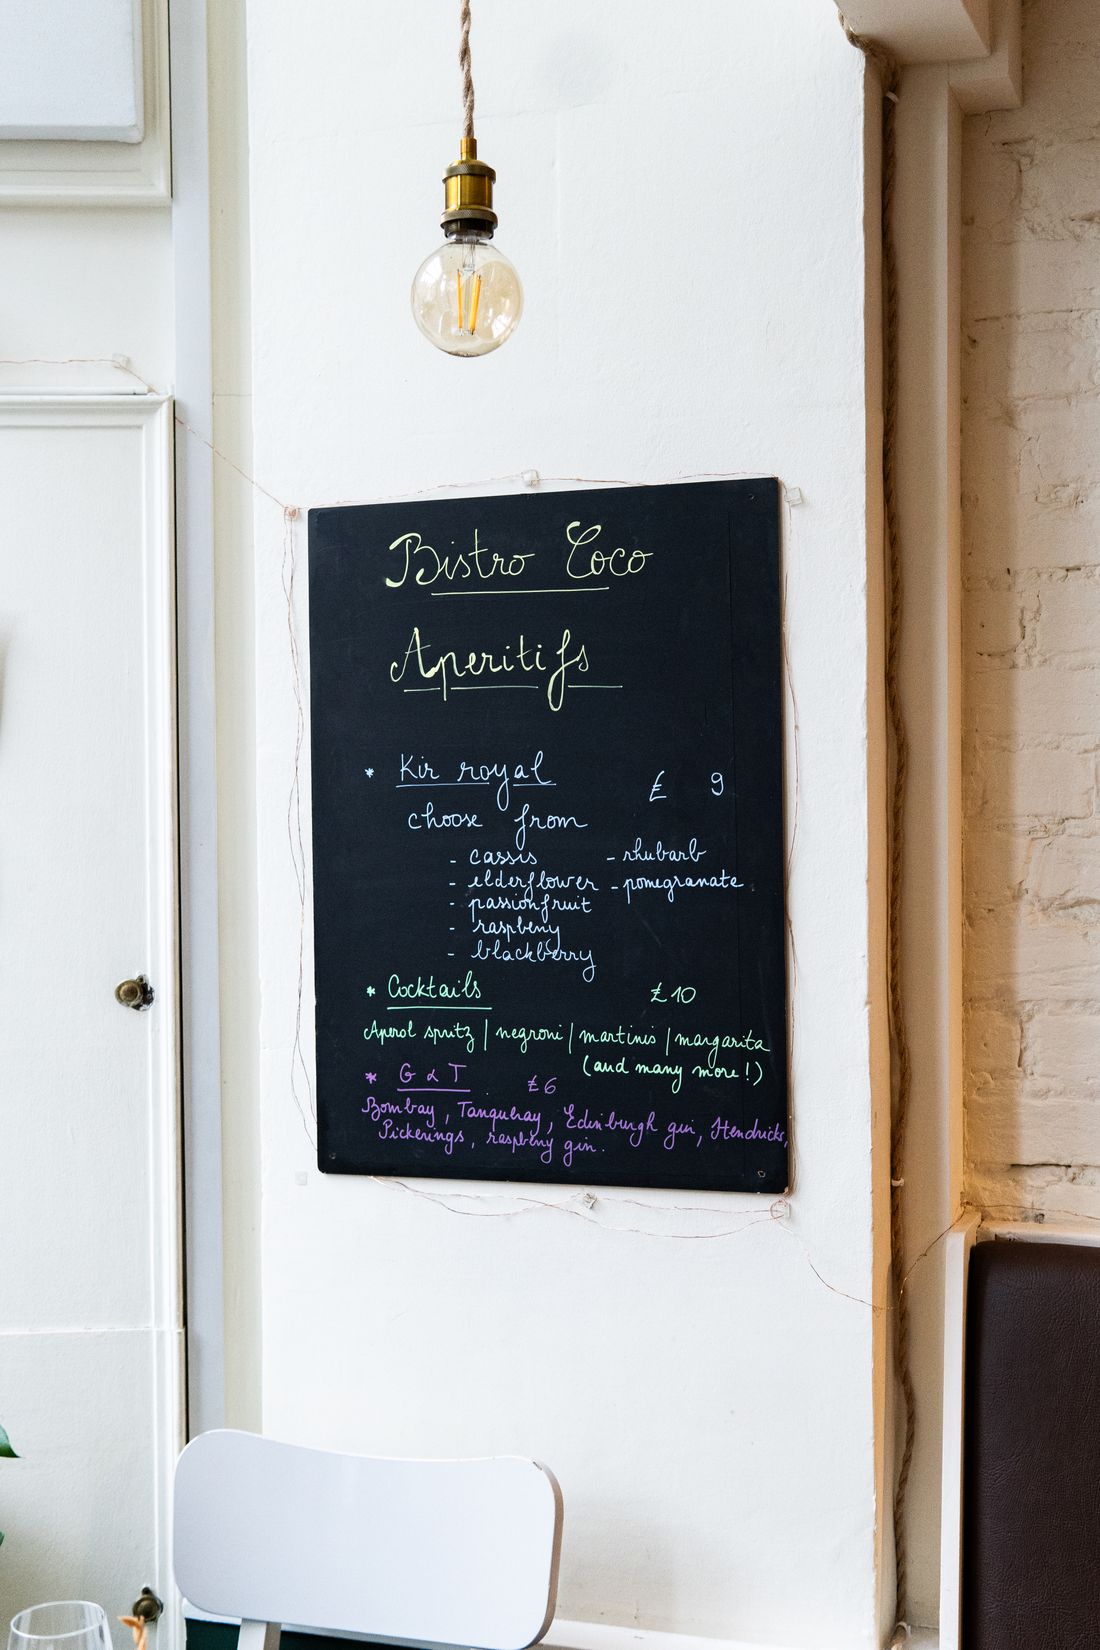 Bistro Coco
Aperitifs
* Kir royal £ 9
choose from
- cassis - rhubarb
- elderflower - pomegranate
- passionfruit
- raspberry
- blackberry
* Cocktails £10
Aperol spritz | negroni | martinis | margarita
(and many more!)
* G & T £6
Bombay, Tanqueray, Edinburgh gin, Hendricks,
Pickerings, raspberry gin.